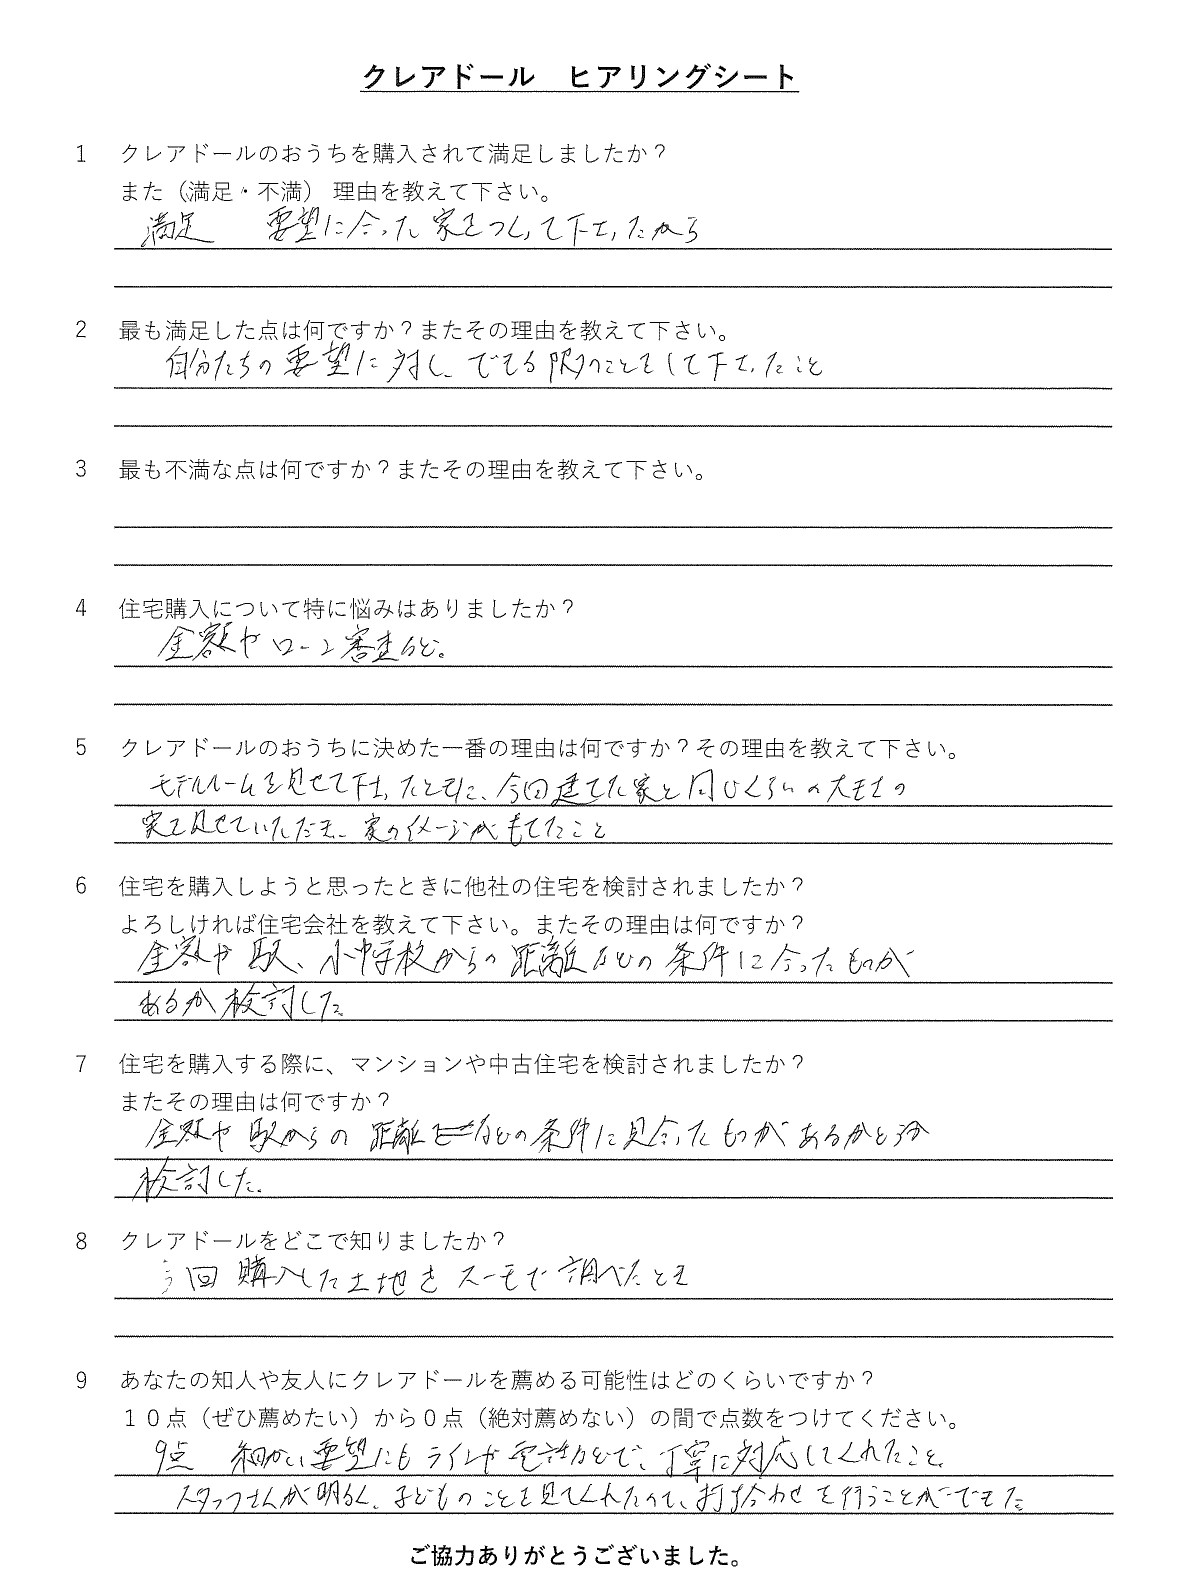 クレアドール　ヒアリングシート
1 クレアドールのおうちを購入されて満足しましたか？
また（満足・不満） 理由を教えて下さい。
満足　要望に合った家をつくって下さったから
2 最も満足した点は何ですか？またその理由を教えて下さい。
自分たちの要望に対し、できる限りのことをして下さったこと
3 最も不満な点は何ですか？またその理由を教えて下さい。
4 住宅購入について特に悩みはありましたか？
金額やローン審査など。
5 クレアドールのおうちに決めた一番の理由は何ですか？その理由を教えて下さい。
モデルルームを見せて下さったときに、今回建てた家と同じくらいの大きさの
家を見せていただき、家のイメージがもてたこと
6 住宅を購入しようと思ったときに他社の住宅を検討されましたか？
よろしければ住宅会社を教えて下さい。またその理由は何ですか？
金額や駅、小中学校からの距離などの条件に合ったものが
あるか検討した。
7 住宅を購入する際に、マンションや中古住宅を検討されましたか？
またその理由は何ですか？
金額や駅からの距離などの条件に見合ったものがあるかどうか
検討した。
8 クレアドールをどこで知りましたか？
今回購入した土地をスーモで調べたとき
9 あなたの知人や友人にクレアドールを薦める可能性はどのくらいですか？
１０点（ぜひ薦めたい）から０点（絶対薦めない）の間で点数をつけてください。
9点　細かい要望にもラインや電話などで、丁寧に対応してくれたこと。
スタッフさんが明るく、子どものことを見てくれたので、打ち合わせを行うことができた。
ご協力ありがとうございました。